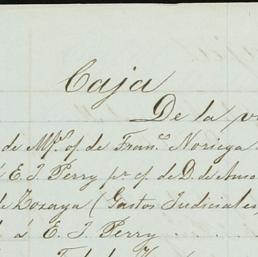 Caja
De la v
de Mp. of. de Fran.co Noriega
á E. J. Perry pr cf. de D. de Amo
de Zozaya (Gastos Judiciales
á E. J. Perry